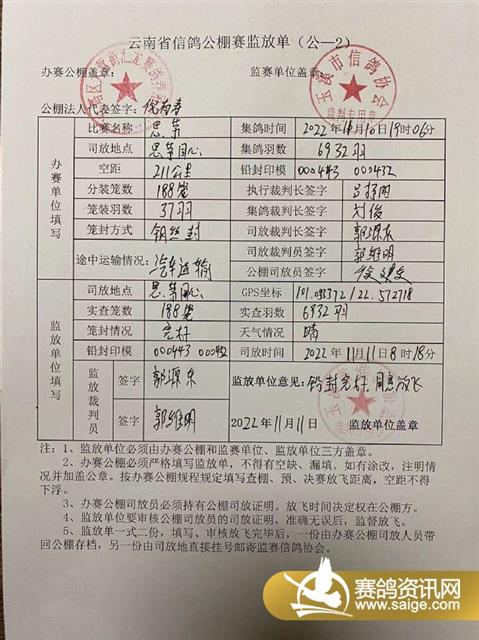 云南省信鸽公棚赛监放单（公—2）
办赛公棚盖章： 监赛单位盖章：
玉溪市信鸽协会
裁判专用章
公棚法人代表签字：
办赛单位填写
比赛名称 思茅 集鸽时间 2022年11月10日19时06分
司放地点 思茅同心 集鸽羽数 6932羽
空距 211公里 铅封印模 000443 000432
分装笼数 188笼 执行裁判长签字
笼装羽数 37羽 集鸽裁判长签字 刘俊
笼封方式 钢丝封 司放裁判长签字 郭源东
途中运输情况： 汽车运输 司放裁判员签字 郭维明
公棚司放员签字
监放单位填写
司放地点 思茅同心 GPS坐标 101.033372/22.572718
实查笼数 188笼 实查羽数 6932羽
笼封情况 完好 天气情况 晴
铅封印模 000443 000432 司放时间 2022年11月11日8时18分
监放裁判员 签字 郭源东 监放单位意见： 铅封完好，同意放飞
签字 郭维明 2022年11月11日 监放单位盖章
注：1、监放单位必须由办赛公棚和监赛单位、监放单位三方盖章。
2、办赛公棚必须严格填写监放单，不得有空缺、漏填。如有涂改，注明情
况并加盖公章。按办赛公棚规程规定填写查棚、预、决赛放飞距离，空距不得
下浮。
3、办赛公棚司放员必须持有公棚司放证明。放飞时间决定权在公棚方。
4、监放单位要审核公棚司放员的司放证明，准确无误后，监督放飞。
5、监放单一式二份，填写、审核放飞完毕后，一份由办赛公棚司放人员带
回公棚存档，另一份由司放地直接挂号邮寄监赛信鸽协会。
赛鸽资讯网
www.saige.com